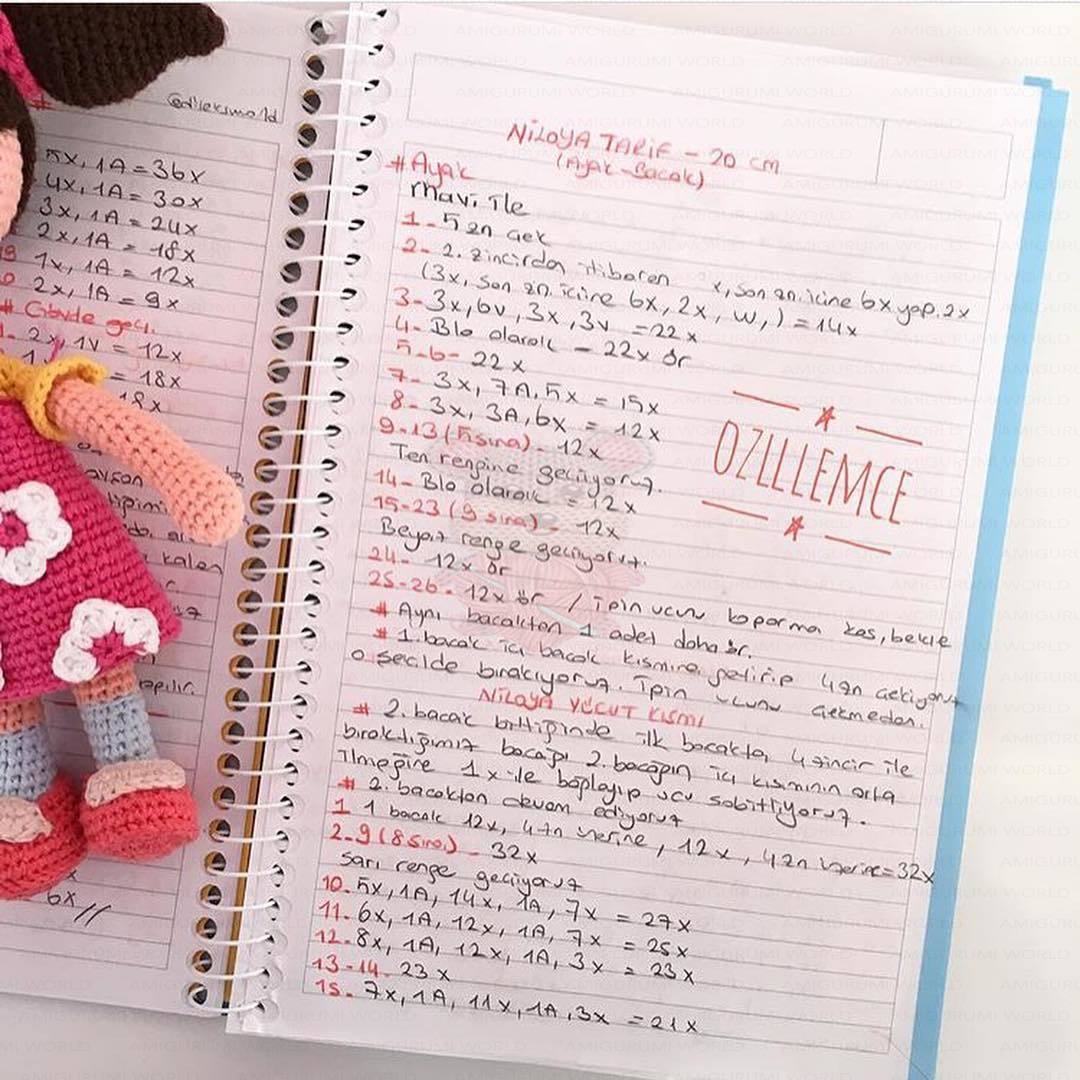 @dileksmold
5x, 1A = 36x
4x, 1A = 30x
3x, 1A = 24x
2x, 1A = 18x
1x, 1A = 12x
2x, 1A = 9x
# Gövde geç.
1. 2x 1v = 12x
= 18x
18x
kalan
6x //
NiLOYA TARiF - 20 CM
(Ayak - Bacak)
# Ayak
Mavi ile
1 - 5 zn çek
2 - 2. zincirden itibaren x, son zn. icine 6x yap. 2x
(3x, son zn. icine 6x, 2x, w,) = 14x
3 - 3x, 6v, 3x, 3v = 22x
4 - Blo olarak - 22x ör
5-6 - 22 x
7 - 3x, 7A, 5x = 15x
8 - 3x, 3A, 6x = 12x
9-13 (5 sıra) - 12x
Ten rengine geçiyoruz.
14 - Blo olarak = 12x
15-23 (9 sıra) - 12x
Beyaz renge geçiyoruz.
24 - 12x ör
25-26 - 12x ör / ipin ucunu koparma kes, bekle
# Aynı bacaktan 1 adet daha ör.
# 1. bacak iç bacak kısmına getirip 4 zn çekiyoruz
o şekilde bırakıyoruz. ipin ucunu çekmeden.
NiLOYA VÜCUT KISMI
# 2. bacak bittiğinde ilk bacakta, 4 zincir ile
bıraktığımız bacağı 2. bacağın iç kısmının orta
ilmeğine 1x ile bağlayıp ucu sabitliyoruz.
# 2. bacaktan devam ediyoruz
1 1 bacak 12x, 4zn üzerine, 12x, 4zn üzerine = 32x
2-9 (8 sıra) - 32x
Sarı renge geçiyoruz
10. 5x, 1A, 14x, 1A, 7x = 27x
11. 6x, 1A, 12x, 1A, 7x = 25x
12 - 8x, 1A, 12x, 1A, 3x = 23x
13-14. 23 x
15 - 7x, 1A, 11x, 1A, 3x = 21x
OZLLLEMCE
AMIGURUMI WORLD